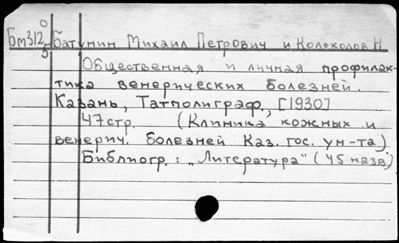 Бм312 Батунин Михаил Петрович и Колоколов Н
Общественная и личная профилак-
тика венерических болезней.
Казань, Татполиграф, [1930]
47стр. (Клиника кожных и
венерич. болезней Каз. гос. ун-та)
Библиогр.: „Литература" (45 назв)